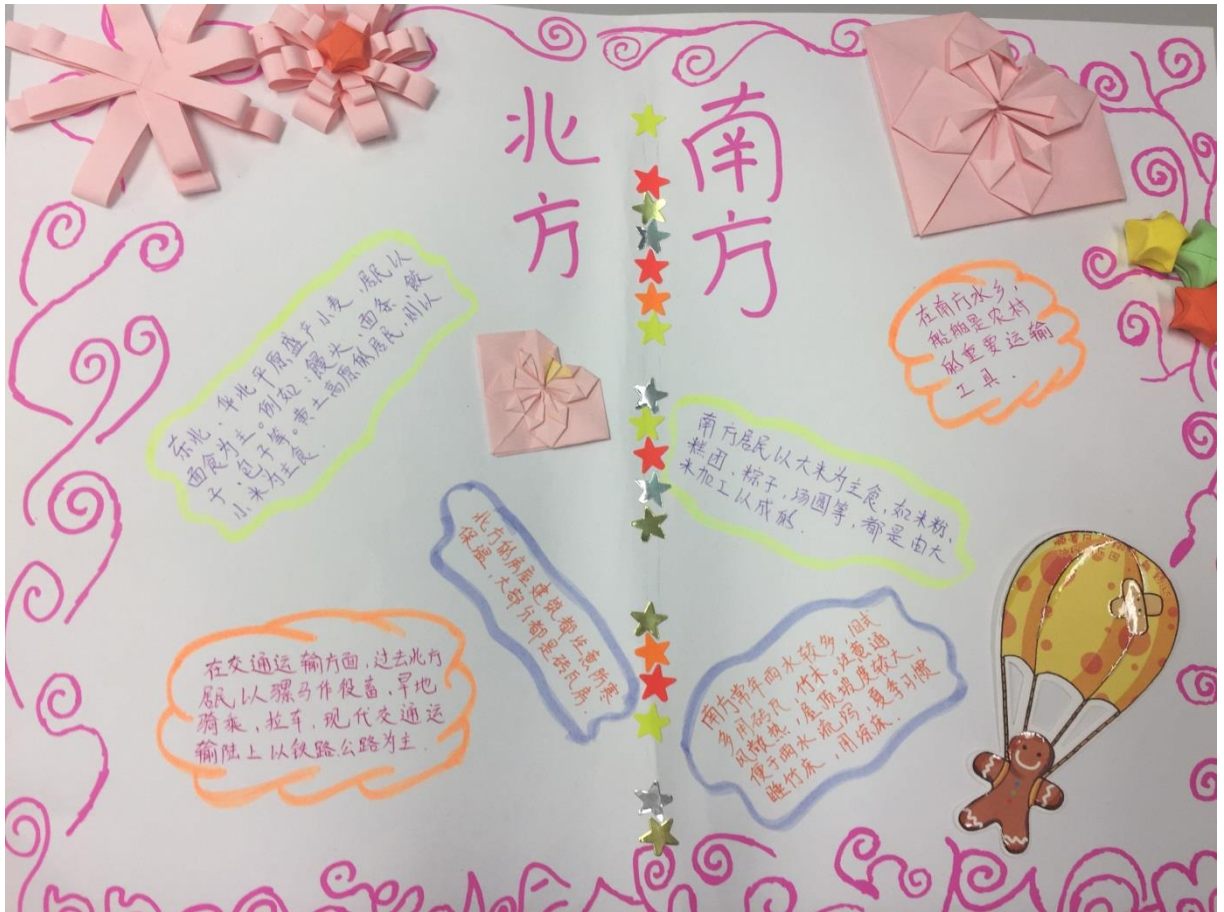 北方
东北、华北平原盛产小麦,居民以
面食为主。例如:馒头、面条、饺
子、包子等。黄土高原的居民,则以
小米为主食.
北方的房屋建筑都注意防寒
保温,大部分都是砖瓦房.
在交通运输方面,过去北方
居民以骡马作役畜,旱地
骑乘,拉车,现代交通运
输陆上以铁路公路为主.
南方
在南方水乡,
船舶是农村
的重要运输
工具.
南方居民以大米为主食,如米粉、
糕团、粽子,汤圆等,都是由大
米加工以成的.
南方常年雨水较多,旧式
多用砖瓦,竹木。注意通
风散热,屋顶坡度较大,
便于雨水流泻,夏季习惯
睡竹床,用凉床.